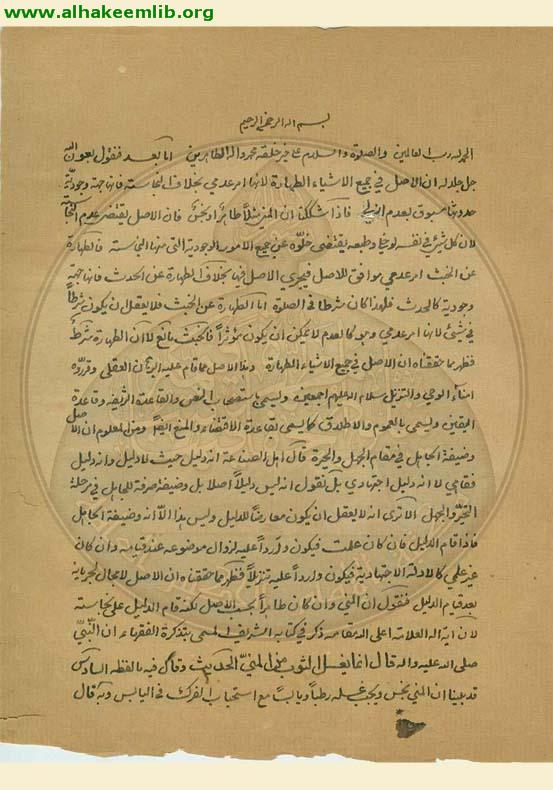 www.alhakeemlib.org
بسم الله الرحمن الرحيم
الحمد لله رب العالمين والصلوة والسلام على خير خلقه محمد واله الطاهرين اما بعد فنقول بعون الله
جل جلاله ان الاصل في جميع الاشياء الطهارة لانها امر عدمي بخلاف النجاسة فانها جهة وجودية
حدوثها مسبوق بعدم فاذا شككنا ان المني مثلاً طاهر او نجس فان الاصل يقتضي عدم النجاسة
لان كل شيء في نفسه لو خلي وطبعه يقتضي خلوه عن جميع الامور الوجودية التي منها النجاسة فالطهارة
عن الخبث امر عدمي موافق للاصل فيجري الاصل فيها بخلاف الطهارة عن الحدث فانها جهة
وجودية كالحدث فلهذا كان شرطا في الصلوة اما الطهارة عن الخبث فلا يعقل ان يكون شرطاً
في شيء لانها امر عدمي وهو كالعدم لا يمكن ان يكون مؤثراً فالخبث مانع لا ان الطهارة شرط
فظهر مما حققناه ان الاصل في جميع الاشياء الطهارة وهذا الاصل مما قام عليه البرهان العقلي وقرره
امناء الوحي والتنزيل سلام الله عليهم اجمعين ويسمى باستصحاب النص والقاعدة الشريفة وقاعدة
اليقين ويسمى بالعموم والاطلاق كما يسمى بقاعدة الاقتضاء والمنع ايضاً ومن المعلوم ان الاصل
وضيفة الجاهل في مقام الجهل والحيرة قال اهل الصناعة انه دليل حيث لا دليل وانه دليل
فقاهي لا انه دليل اجتهادي بل نقول انه ليس دليلاً اصلا بل وضيفة صرفة للجاهل في مرحلة
التحير والجهل الا ترى انه لا يعقل ان يكون معارضاً للدليل وليس هذا الا انه وضيفة الجاهل
فاذا قام الدليل فان كان علميا فيكون وارداً عليه لزوال موضوعه عند قيامه وان كان
غير علمي كالادلة الاجتهادية فيكون وارداً عليه تنزيلاً فظهر مما حققناه ان الاصل لا مجال لجريانه
بعد قيام الدليل فنقول ان المني وان كان طاهراً بحسب الاصل لكنه قام الدليل على نجاسته
لان اية الله العلامة اعلى الله مقامه ذكر في كتابه الشريف المسمى بتذكرة الفقهاء ان النبي
صلى الله عليه واله قال انما يغسل الثوب من المني الحديث وقال فيه بالفظه السادس
قد بينا ان المني نجس ويجب غسله رطباً ويابساً مع استحباب الفرك في اليابس وبه قال